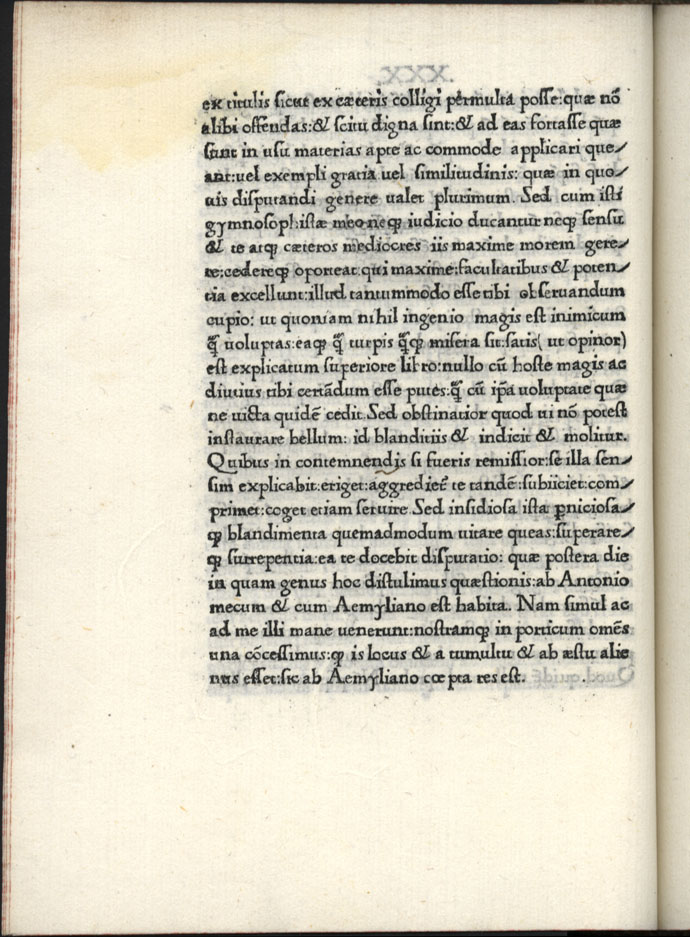 ex titulis sicut ex cæteris colligi permulta posse:quæ nō
alibi offendas:& scitu digna sint:& ad eas fortasse quæ
sunt in usu materias apte ac commode applicari que/
ant:uel exempli gratia uel similitudinis: quæ in quo
uis disputandi genere ualet plurimum. Sed cum isti
gymnosophistæ meo neqꝫ iudicio ducantur neqꝫ sensu
& te atqꝫ cæteros mediocres iis maxime morem gere/
re:cedereqꝫ oporteat qui maxime:facultatibus & poten/
tia excellunt:illud tantummodo esse tibi obseruandum
cupio: ut quoniam nihil ingenio magis est inimicum
q̃ uoluptas:eaqꝫ q̃ turpis q̃qꝫ misera sit:satis( ut opinor)
est explicatum superiore libro:nullo cū hoste magis ac
diutius tibi certādum esse putes:q̃ cū ip̄a uoluptate quæ
ne uicta quidē cedit. Sed obstinatior quod ui nō potest
instaurare bellum: id blanditiis & indicit & molitur.
Quibus in contemnendis si fueris remissior:se illa sen/
sim explicabit:eriget:aggrediet᷑ te tandē:subiiciet:com/
primet:coget etiam seruire. Sed insidiosa ista ꝑniciosa/
qꝫ blandimenta quemadmodum uitare queas:superare/
qꝫ surrepentia:ea te docebit disputatio: quæ postera die
in quam genus hoc distulimus quæstionis:ab Antonio
mecum & cum Aemyliano est habita. Nam simul ac
ad me illi mane uenerunt:nostramqꝫ in porticum omēs
una cōcessimus:ꝙ is locus & a tumultu & ab æstu alie
nus esset:sic ab Aemyliano cœpta res est.